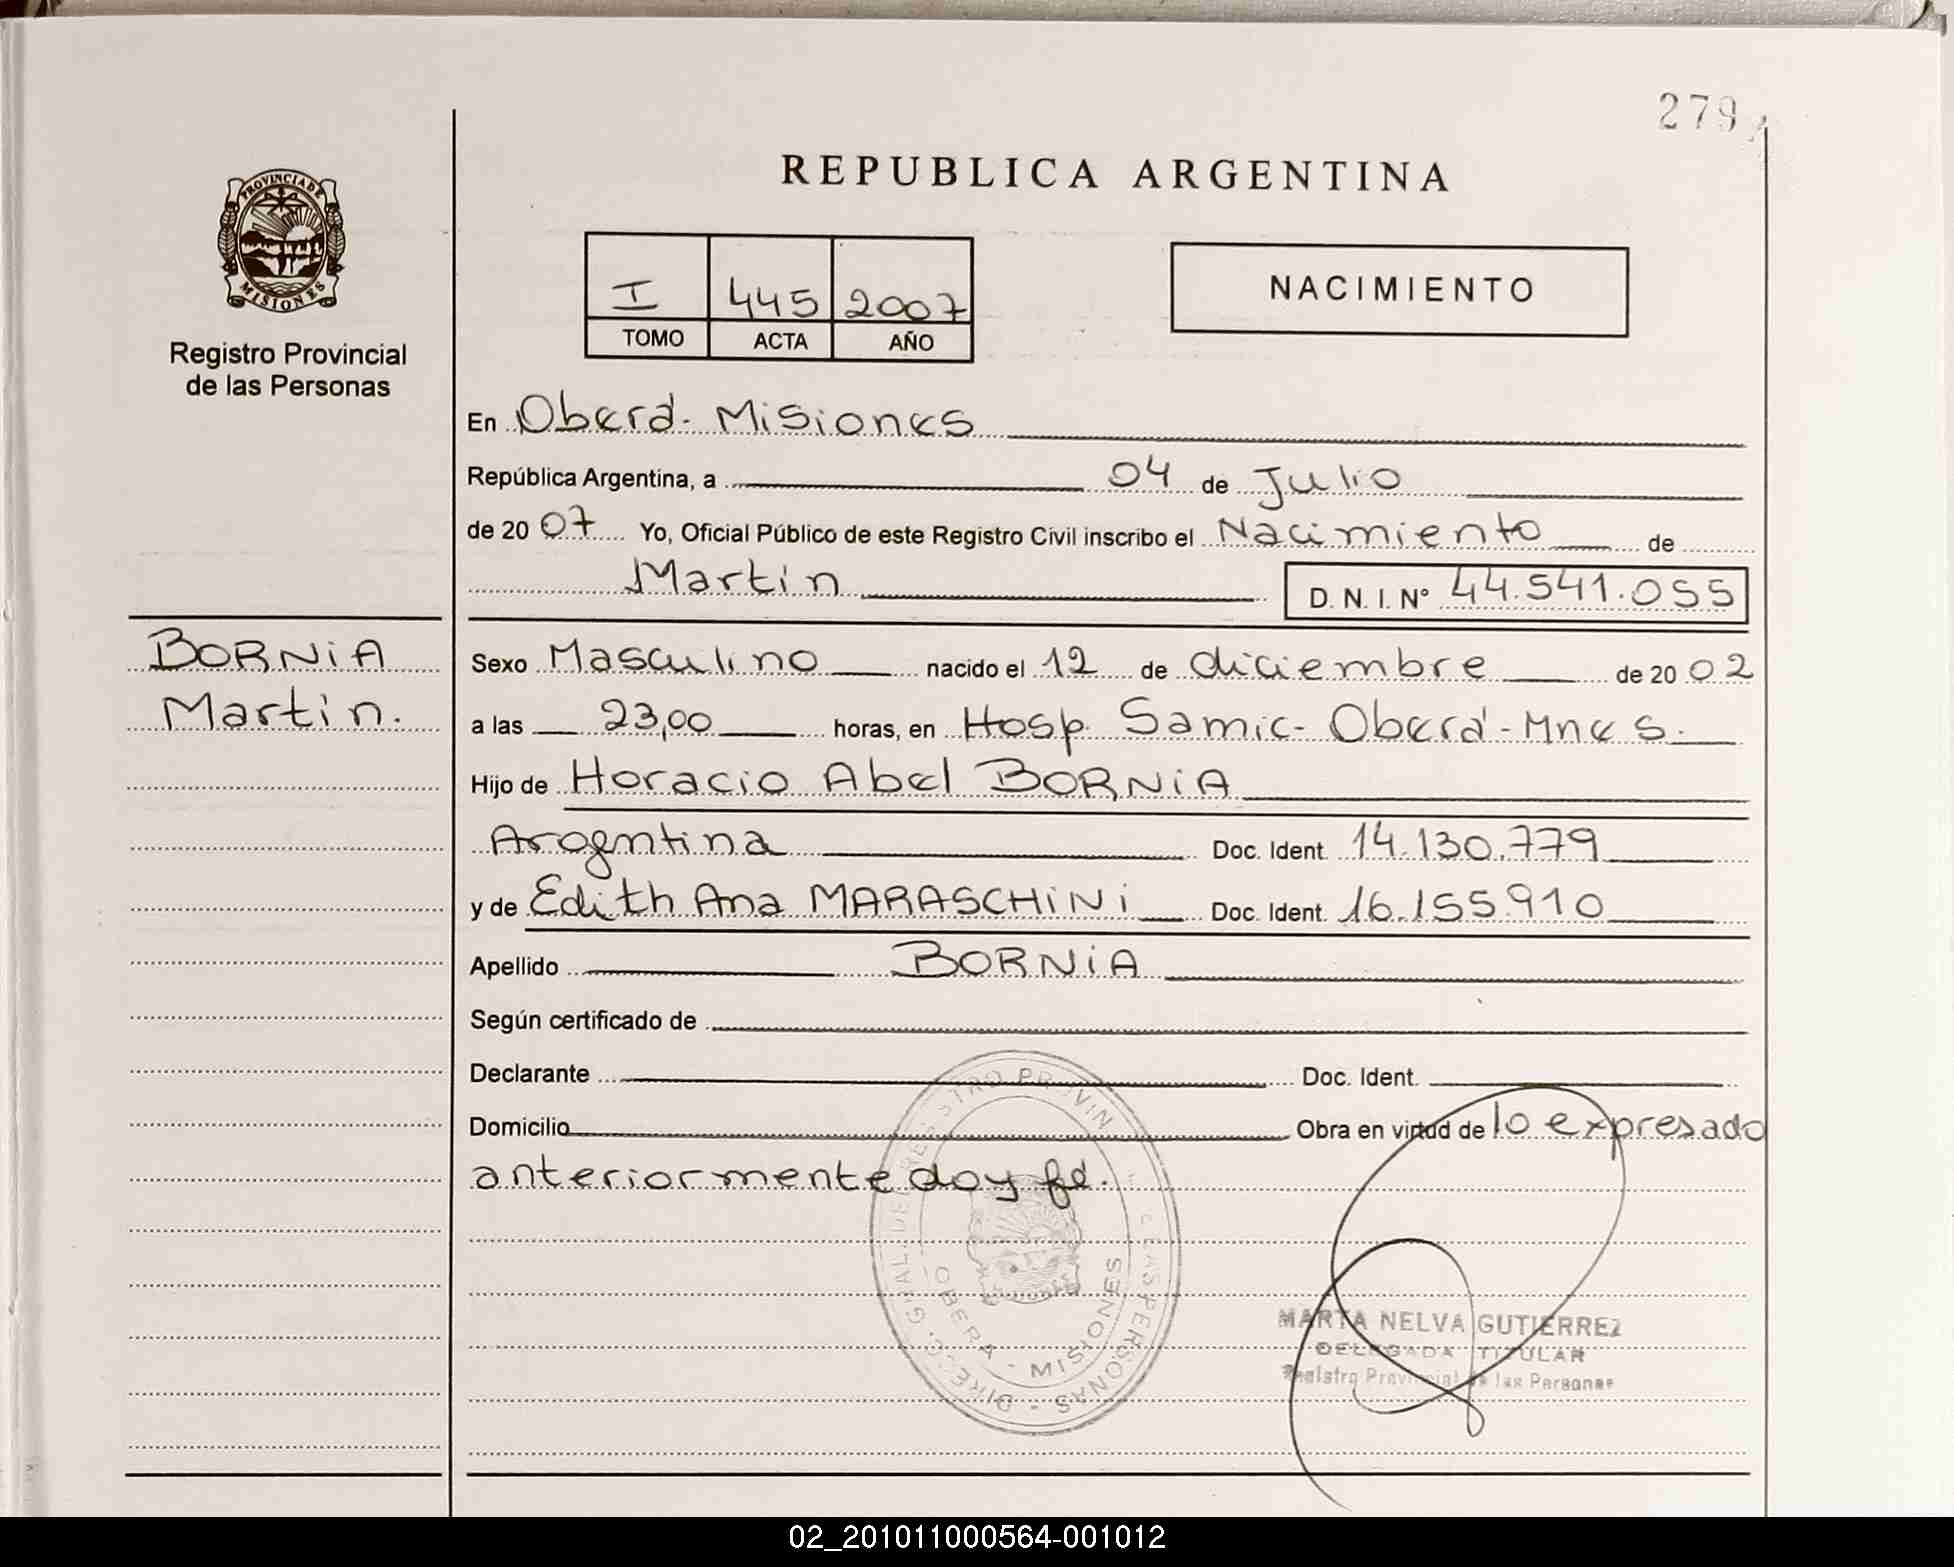 279
REPUBLICA ARGENTINA
PROVINCIA DE
MISIONES
Registro Provincial
de las Personas
I 445 2007
TOMO ACTA AÑO
NACIMIENTO
En Oberá - Misiones
República Argentina, a 04 de Julio
de 20 07 Yo, Oficial Público de este Registro Civil inscribo el Nacimiento de
Martín D. N. I. N° 44.541.055
BORNiA
Martín.
Sexo Masculino nacido el 12 de diciembre de 20 02
a las 23,00 horas, en Hosp. Samic - Oberá - Mnes.
Hijo de Horacio Abel BORNiA
Argentina Doc. Ident. 14.130.779
y de Edith Ana MARASCHiNi Doc. Ident. 16.155.910
Apellido BORNiA
Según certificado de
Declarante Doc. Ident.
Domicilio Obra en virtud de lo expresado
anteriormente doy fé.
DIREC. GRAL. DEL REGISTRO PROVIN LAS PERSONAS
OBERA - MISIONES
MARTA NELVA GUTIERREZ
DELEGADA TITULAR
Registro Provincial de las Personas
02_201011000564-001012